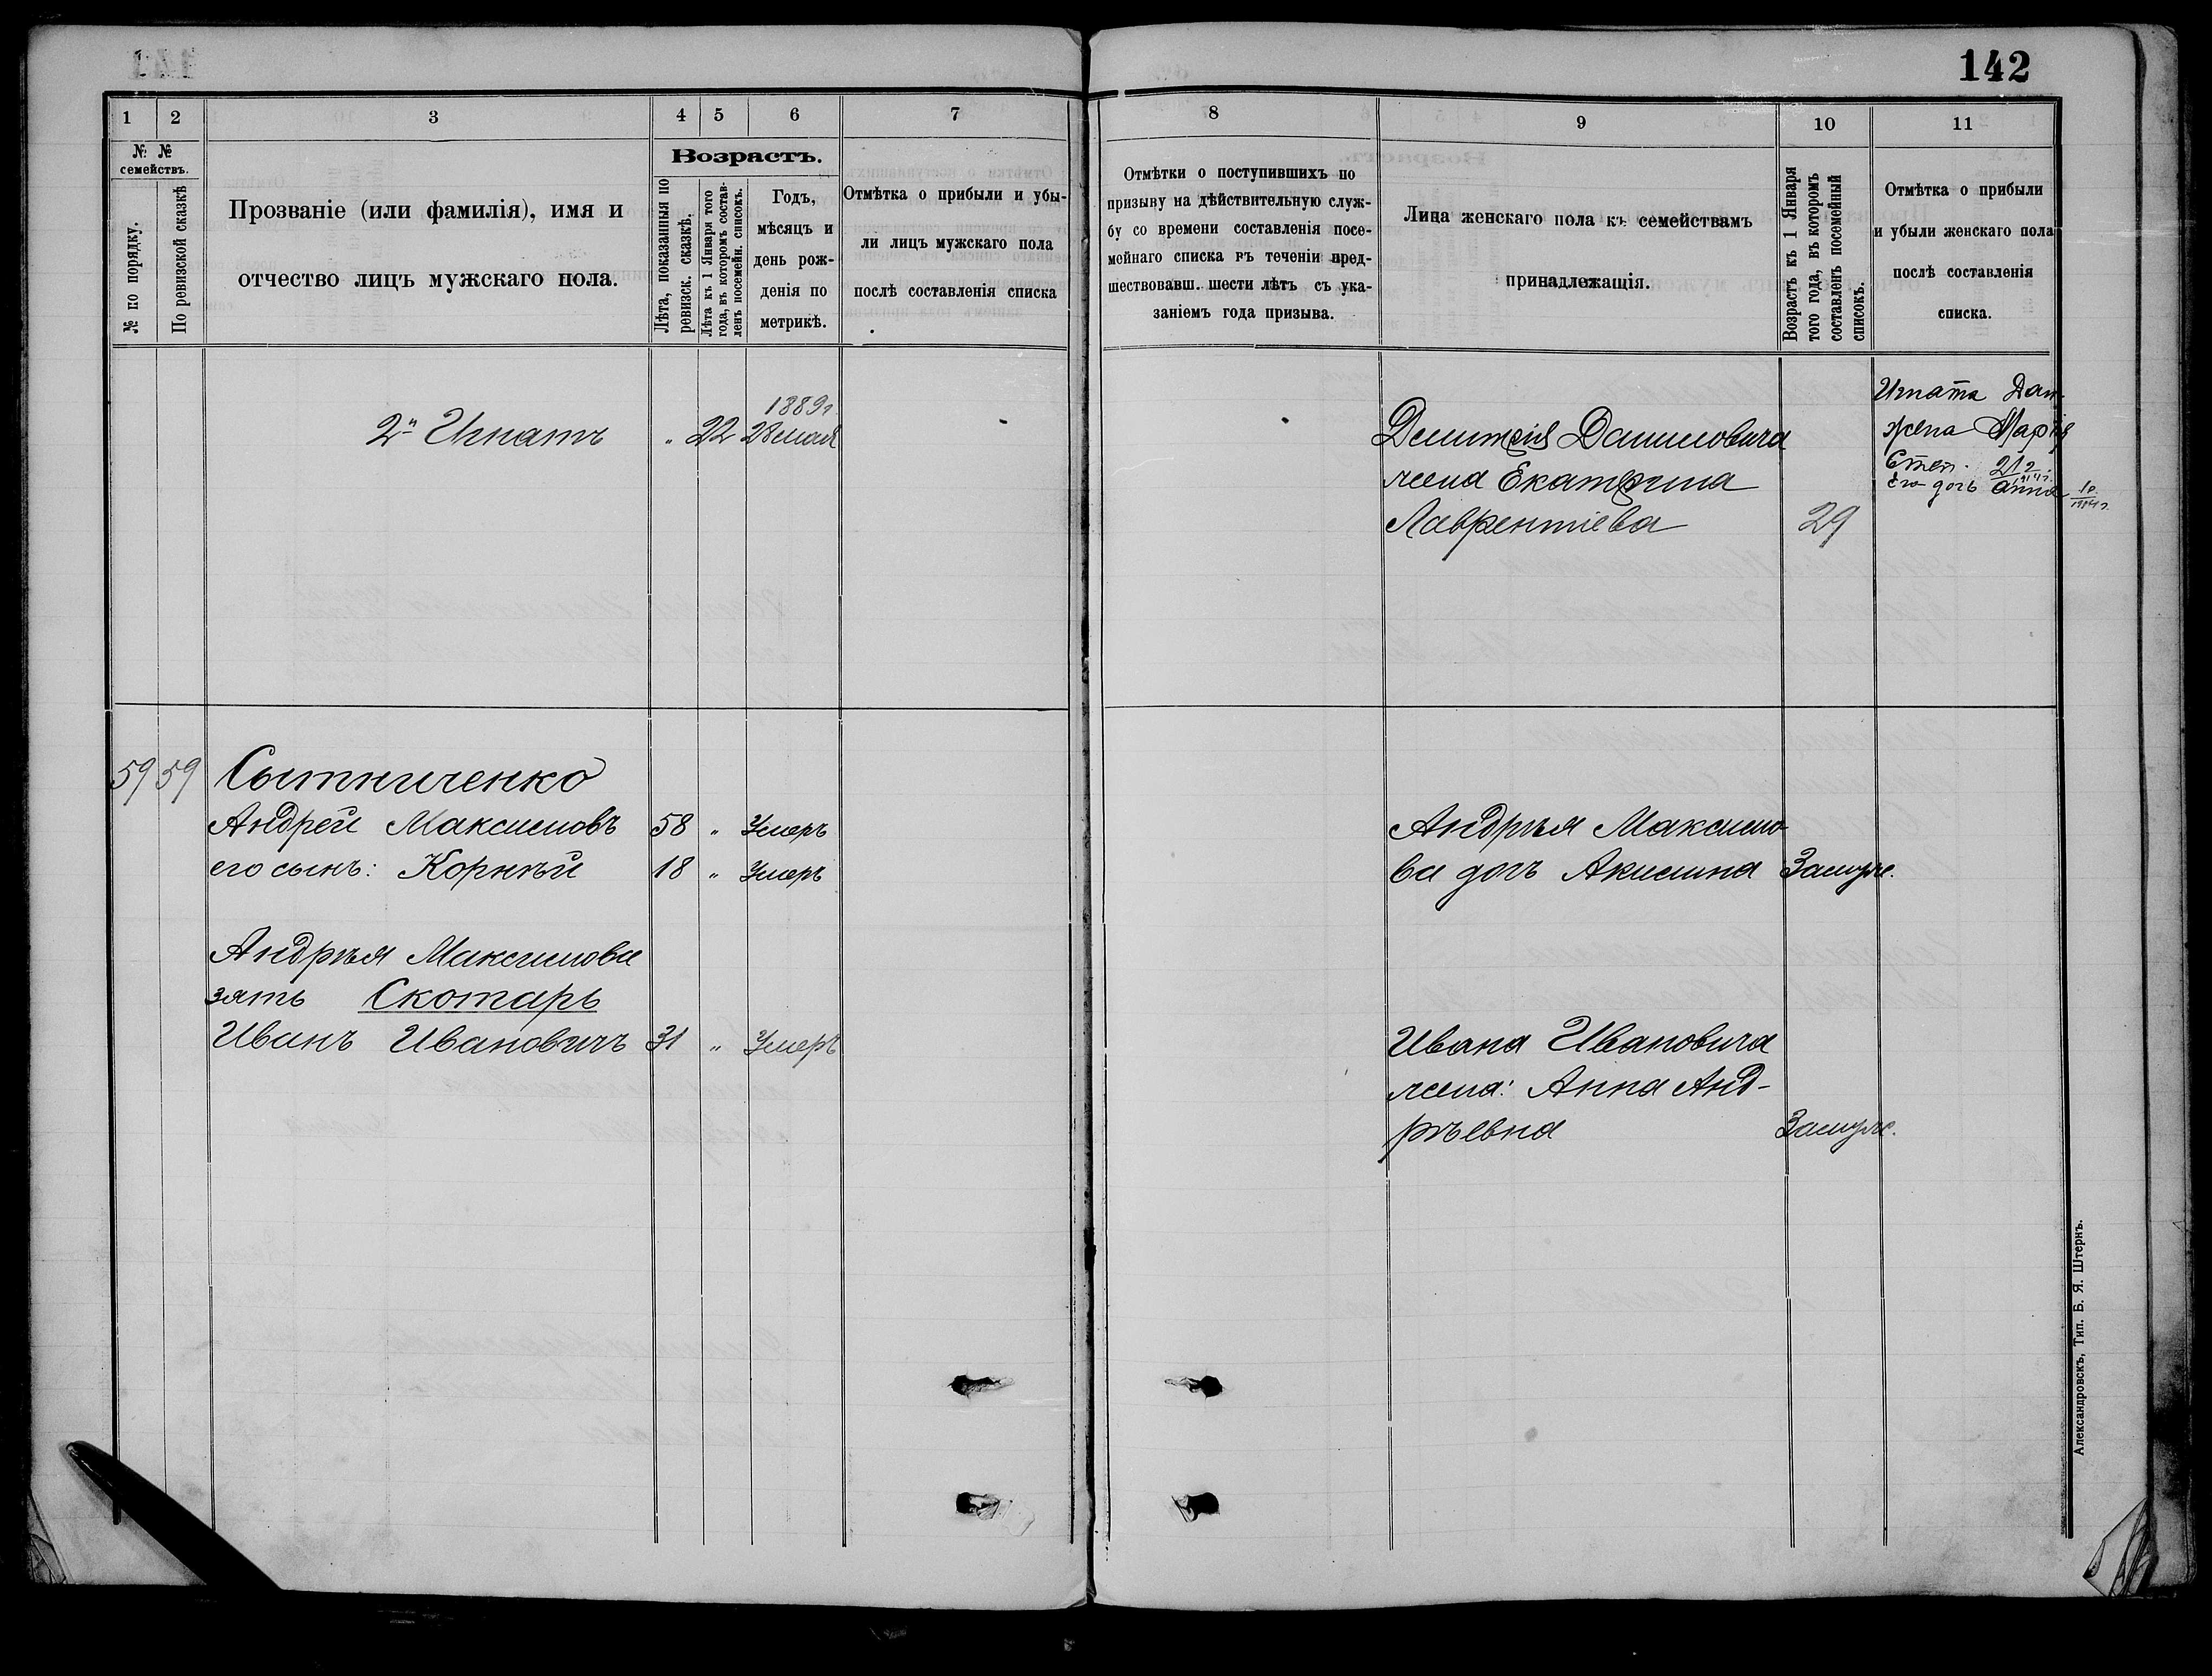 142
1
2
3
4
5
6
7
№ №
семействъ.
№ по порядку.
По ревизской сказкѣ
Прозваніе (или фамилія), имя и
отчество лицъ мужскаго пола.
Возрастъ.
Лѣта, показанныя по
ревизск. сказкѣ.
Лѣта къ 1 Января того
года, въ которомъ состав-
ленъ посемейн. списокъ.
Годъ,
мѣсяцъ и
день рож-
денія по
метрикѣ.
Отмѣтка о прибыли и убы-
ли лицъ мужскаго пола
послѣ составленія списка
2й Игнатъ " 22
1889г.
28 мая
59 59 Сытниченко
Андрей Максимовъ 58 " Умеръ
его сынъ: Корнѣй 18 " Умеръ
Андрѣя Максимова
зять Скотарь
Иванъ Ивановичъ 31 " Умеръ
8
9
10
11
Отмѣтки о поступившихъ по
призыву на дѣйствительную служ-
бу со времени составленія посе-
мейнаго списка въ теченіи пред-
шествовавш. шести лѣтъ съ ука-
заніемъ года призыва.
Лица женскаго пола къ семействамъ
принадлежащія.
Возрастъ къ 1 Января
того года, въ которомъ
составленъ посемейный
списокъ.
Отмѣтка о прибыли
и убыли женскаго пола
послѣ составленія
списка.
Димитрія Даниловича
жена Екатерина
Лаврентіева 29
Игната Дан.
жена Марія
Степ. 21
его дочь Анна
Андрѣя Максимо-
ва дочь Акимина Замуж.
Ивана Ивановича
жена: Анна Анд-
рѣевна Замуж.
Александровскъ, Тип. Б. Я. Штернъ.